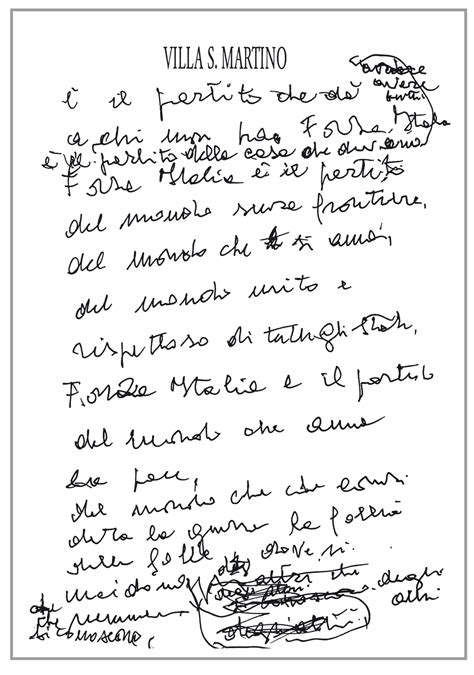 VILLA S. MARTINO
è il partito che dà
a chi non ha, Forza Italia
è il partito della casa che
Forza Italia è il partito
del mondo senza frontiere,
del mondo che si ama,
del mondo unito e
rispettoso di tutti gli Stati,
Forza Italia è il partito
del mondo che ama
la pace,
del mondo che consi
dera la guerra la follia
delle follie, dove si
uccidono degli altri
che nemmeno
si conoscono,